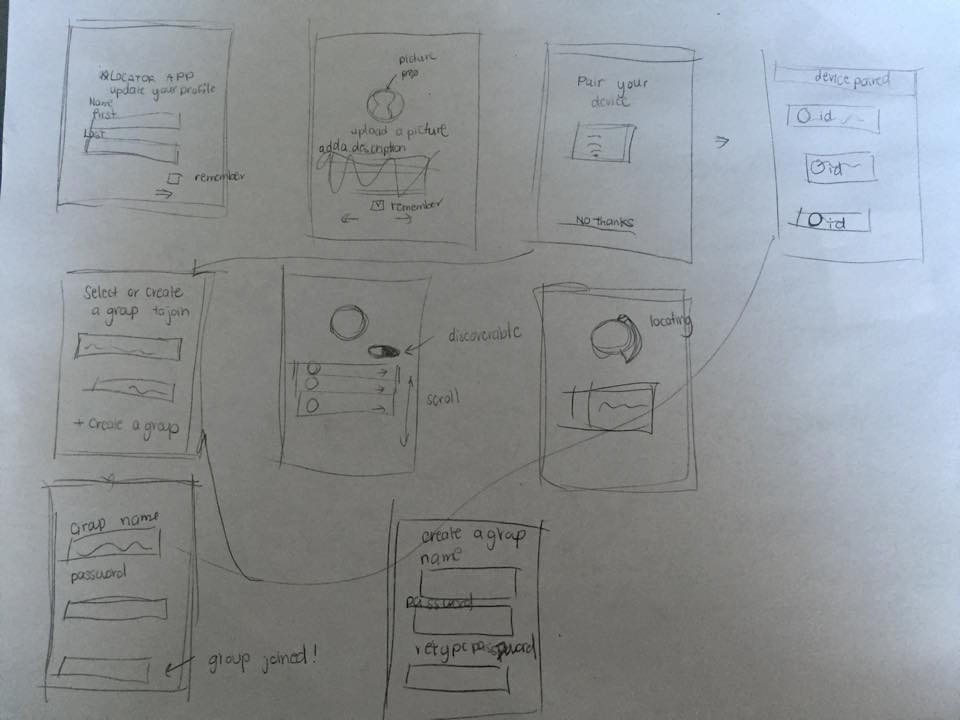 LOCATOR APP
update your profile
Name
first
Last
remember
picture
upload a picture
add a description
remember
Pair your
device
No thanks
device paired
id
id
id
Select or create
a group to join
+ Create a group
discoverable
scroll
locating
Group name
password
group joined!
create a group
name
password
retype password